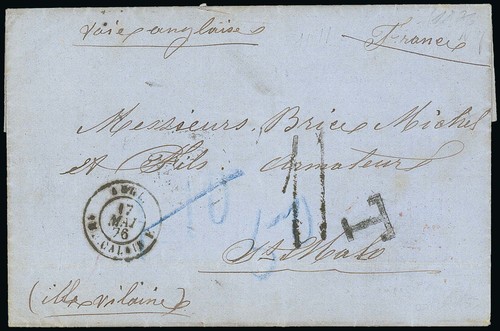 Voie anglaise
France
Messieurs Brice Michel
et Fils Armateurs
11
T
St Malo
ANGL.
17
MAI
76
CALAIS
10
(ille & vilaine)